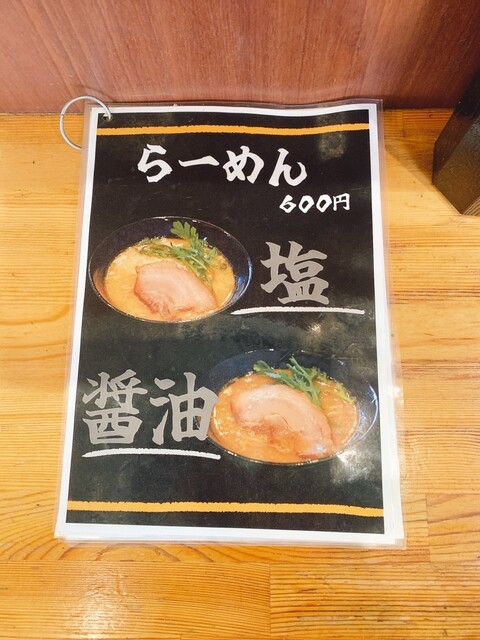 らーめん
600円
塩
醤油